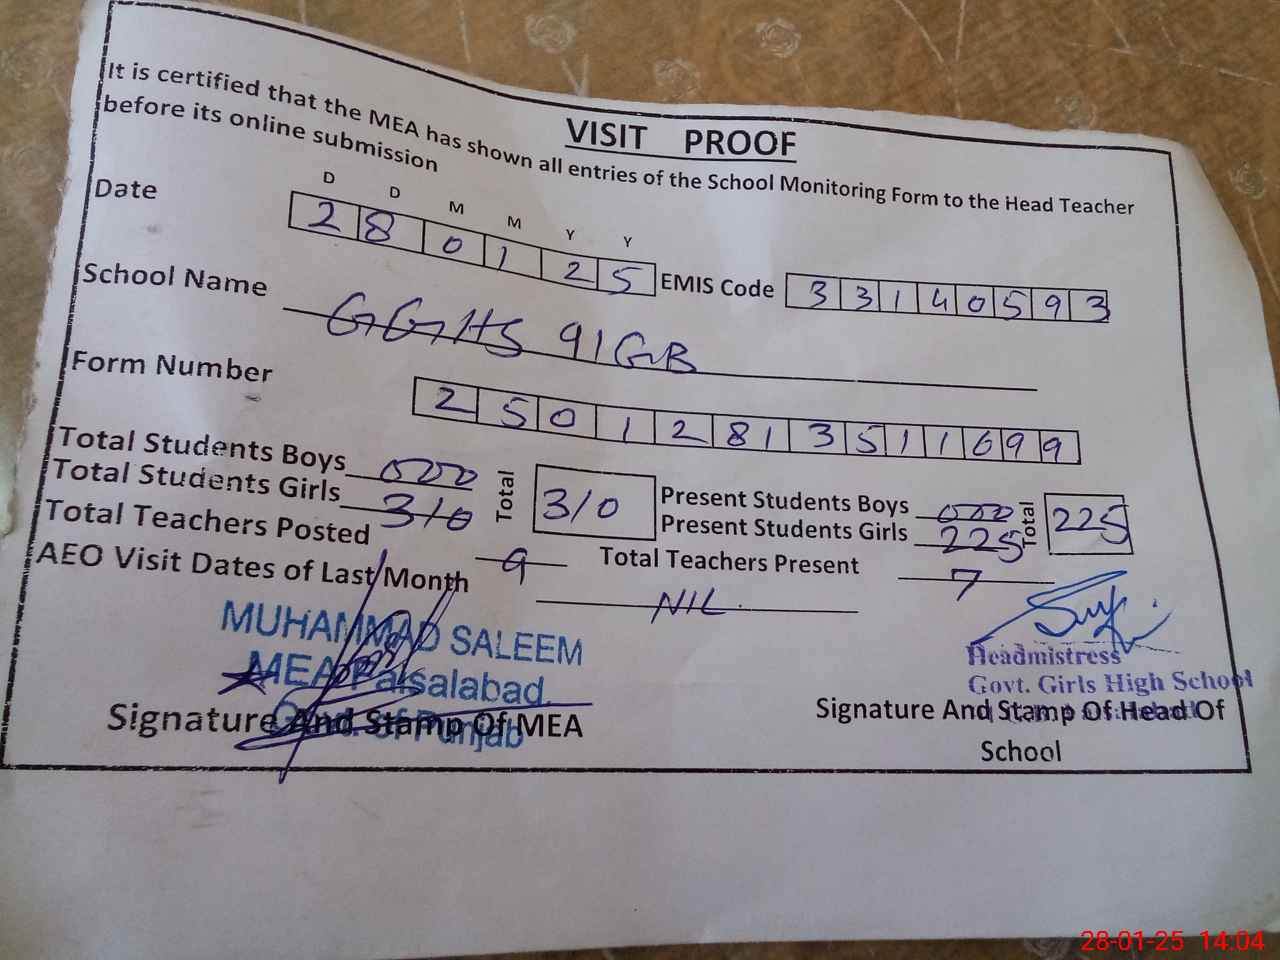 VISIT PROOF
It is certified that the MEA has shown all entries of the School Monitoring Form to the Head Teacher
before its online submission
D D M M Y Y
Date 2 8 0 1 2 5 EMIS Code 3 3 1 4 0 5 9 3
School Name GGHS 91 GB
Form Number 2 5 0 1 2 8 1 3 5 1 1 6 9 9
Total Students Boys 000 Total 310 Present Students Boys 000 Total 225
Total Students Girls 310 Present Students Girls 225
Total Teachers Posted 9 Total Teachers Present 7
AEO Visit Dates of Last Month NIL
MUHAMMAD SALEEM
MEA Faisalabad
Govt. of Punjab
Signature And Stamp Of MEA
Headmistress
Govt. Girls High School
Signature And Stamp Of Head Of
School
28-01-25 14:04